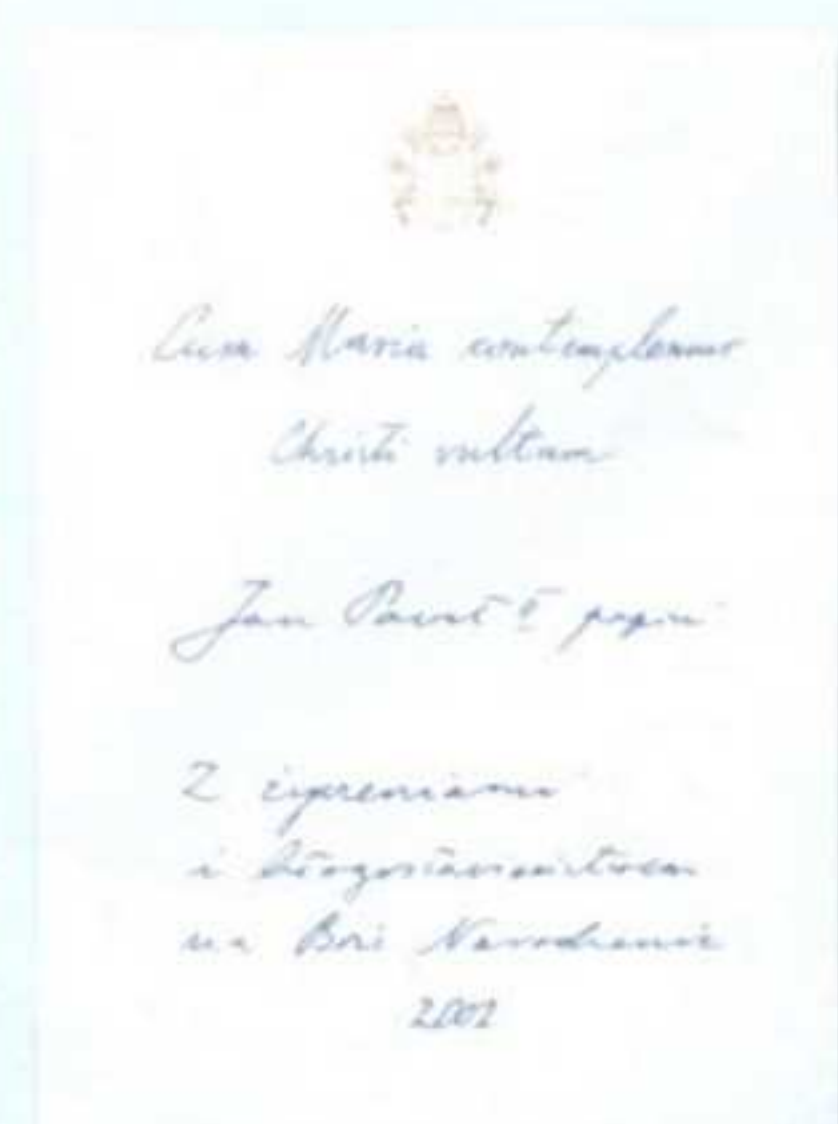 Cum Maria contemplemur
Christi vultum
Jan Paweł II papież
Z życzeniami
i błogosławieństwem
na Boże Narodzenie
2002